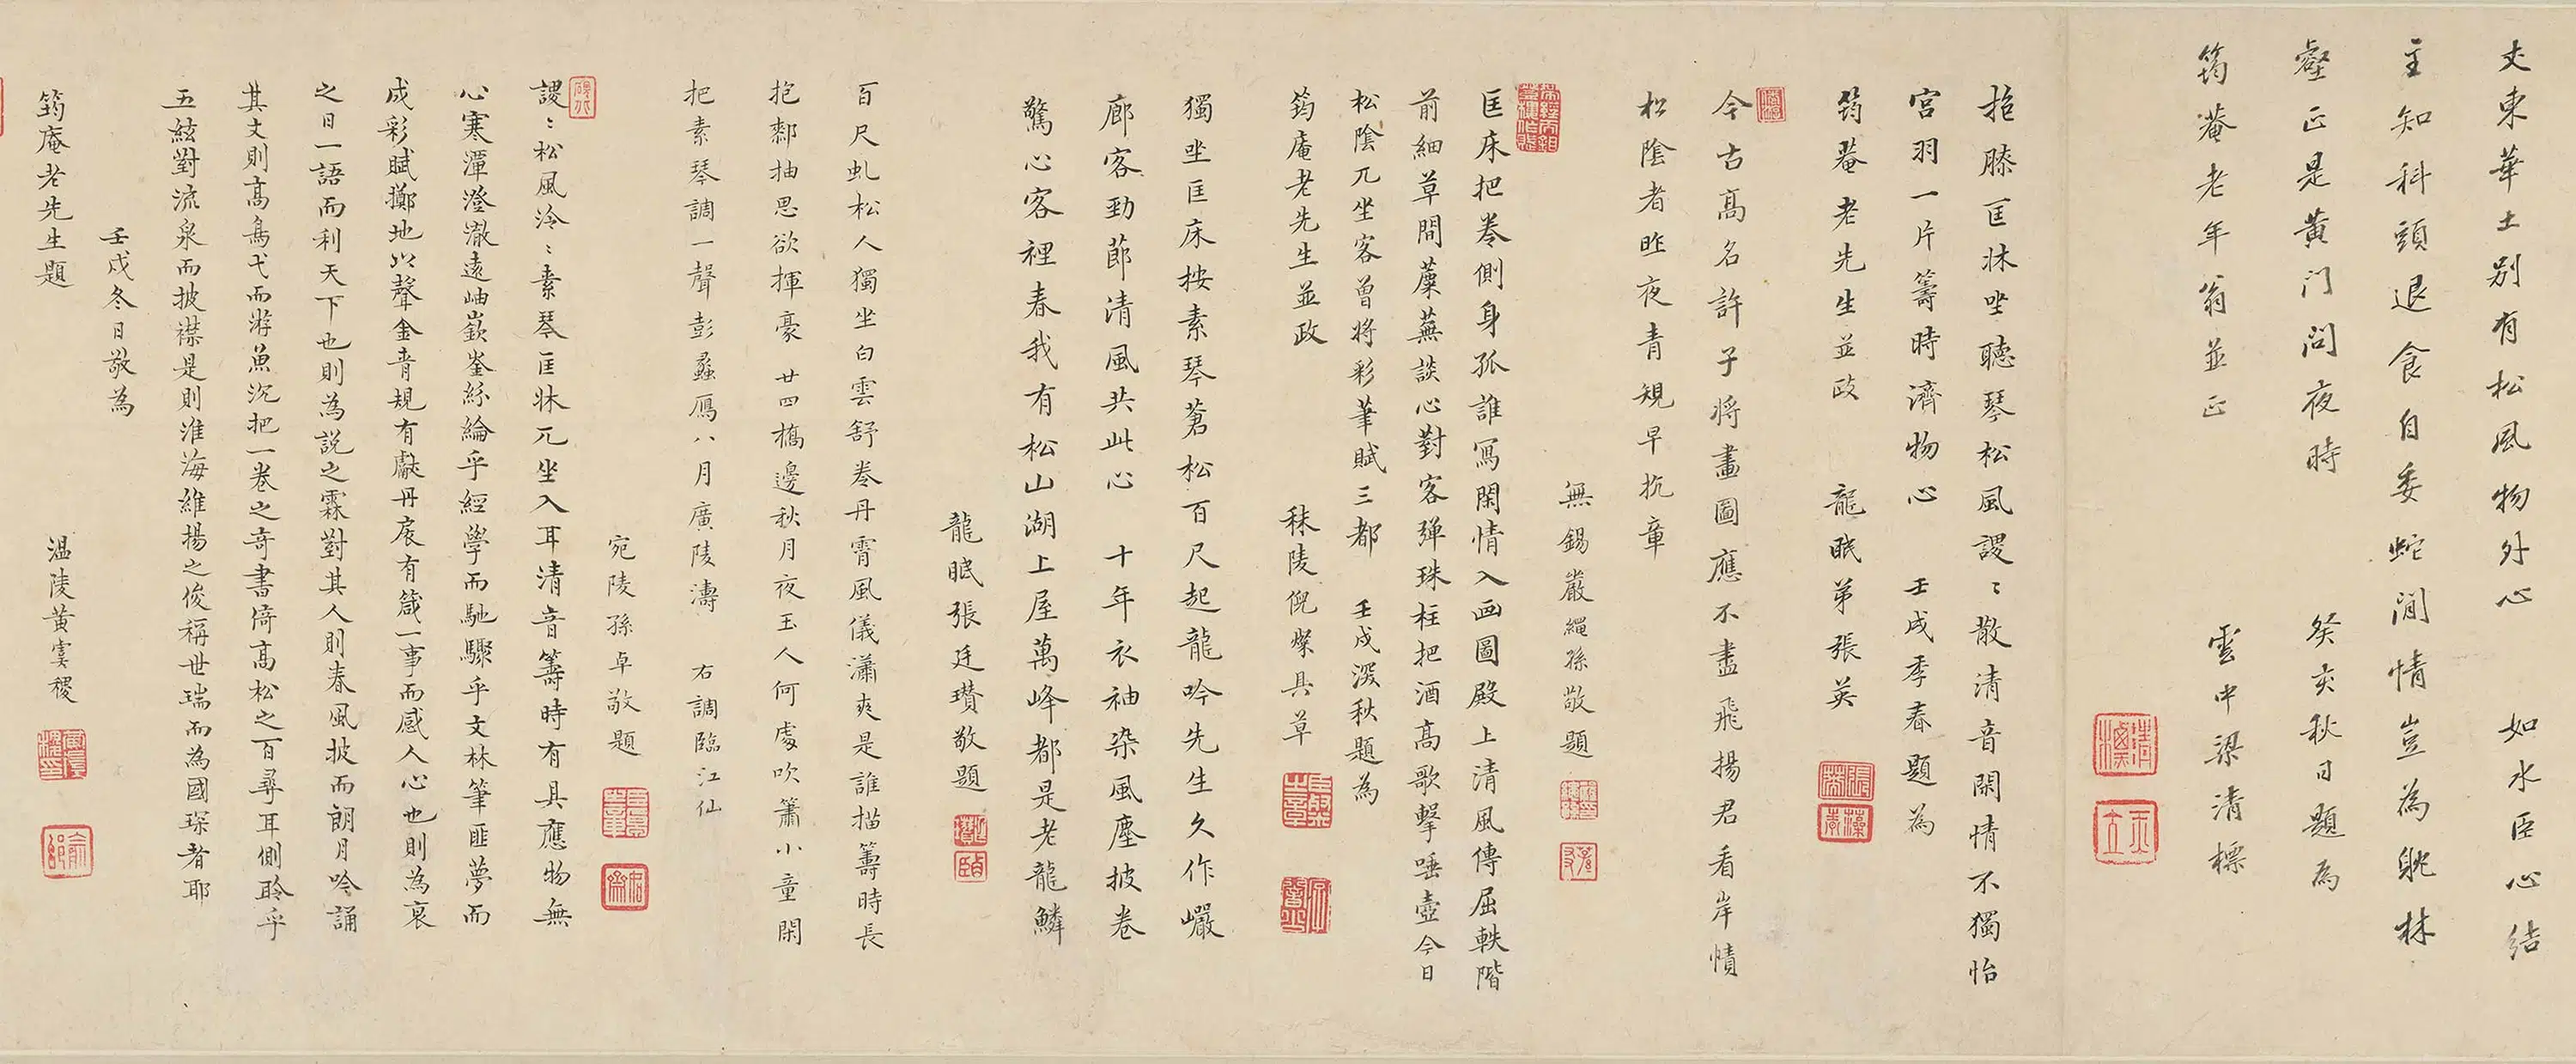 丈東華土別有松風物外心　如水臣心結
主知科頭退食自委蛇閒情豈為眺林
壑正是黃门问夜時　癸亥秋日題為
筠菴老年翁並正　雲中梁清標
抱膝匡牀坐聽琴松風謖〻散清音閑情不獨怡
宮羽一片籌時濟物心　壬戌季春題為
筠菴老先生並政　龍眠弟張英
今古髙名許子將畫圖應不盡飛揚君看岸幘
松陰者昨夜青規早抗章
無錫嚴繩孫敬題
匡床把卷側身孤誰寫閑情入画圖殿上清風傳屈軼階
前細草間蘪蕪談心對客彈珠柱把酒髙歌擊唾壺今日
松陰兀坐客曾將彩筆賦三都　壬戌深秋題為
筠庵老先生並政　秣陵倪燦具草
獨坐匡床按素琴蒼松百尺起龍吟先生久作巖
廊客勁節清風共此心　十年衣袖染風塵披卷
驚心客裡春我有松山湖上屋萬峰都是老龍鱗
龍眠張廷瓚敬題
百尺虬松人獨坐白雲舒卷丹霄風儀瀟爽是誰描籌時長
抱鄰抽思欲揮豪　廿四橋邊秋月夜玉人何處吹簫小童閑
把素琴調一聲彭蠡鴈八月廣陵濤　右調臨江仙
宛陵孫卓敬題
謖〻松風泠〻素琴匡牀兀坐入耳清音籌時有具應物無
心寒潭澄澈遠岫嶔崟絲綸乎經學而馳驟乎文林筆匪夢而
成彩賦擲地以聲金青規有獻丹扆有箴一事而感人心也則為袞
之日一語而利天下也則為說之霖對其人則春風披而朗月吟誦
其文則高鳥弋而游魚沉把一卷之奇書倚高松之百尋耳側聆乎
五絃對流泉而披襟是則淮海維揚之俊稱世瑞而為國琛者耶
壬戌冬日敬為
筠庵老先生題　溫陵黃虞稷